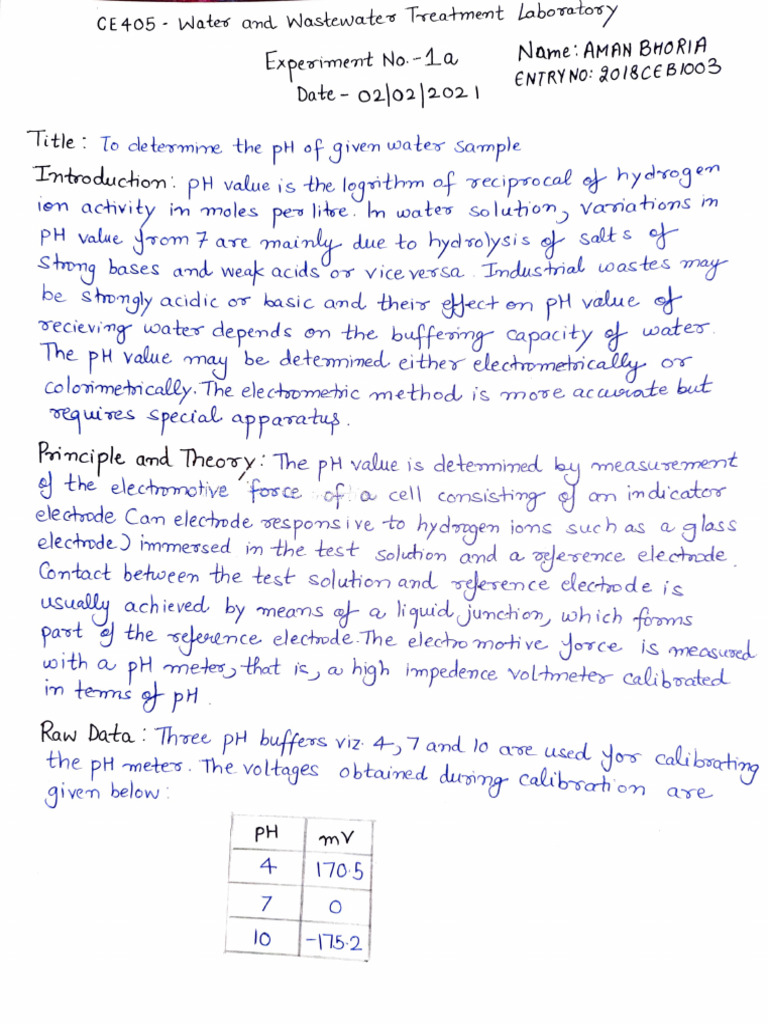 CE405 - Water and Wastewater Treatment Laboratory
Experiment No.-1a
Name: AMAN BHORIA
Date - 02/02/2021
ENTRY NO: 2018CEB1003
Title: To determine the pH of given water sample
Introduction: pH value is the logrithm of reciprocal of hydrogen
ion activity in moles per litre. In water solution, variations in
pH value from 7 are mainly due to hydrolysis of salts of
strong bases and weak acids or vice versa. Industrial wastes may
be strongly acidic or basic and their effect on pH value of
recieving water depends on the buffering capacity of water.
The pH value may be determined either electrometrically or
colorimetrically. The electrometric method is more accurate but
requires special apparatus.
Principle and Theory: The pH value is determined by measurement
of the electromotive force of a cell consisting of an indicator
electrode (an electrode responsive to hydrogen ions such as a glass
electrode) immersed in the test solution and a reference electrode.
Contact between the test solution and reference electrode is
usually achieved by means of a liquid junction, which forms
part of the reference electrode. The electromotive force is measured
with a pH meter, that is, a high impedence voltmeter calibrated
in terms of pH.
Raw Data: Three pH buffers viz. 4, 7 and 10 are used for calibrating
the pH meter. The voltages obtained during calibration are
given below:
pH mV
4 170.5
7 0
10 -175.2